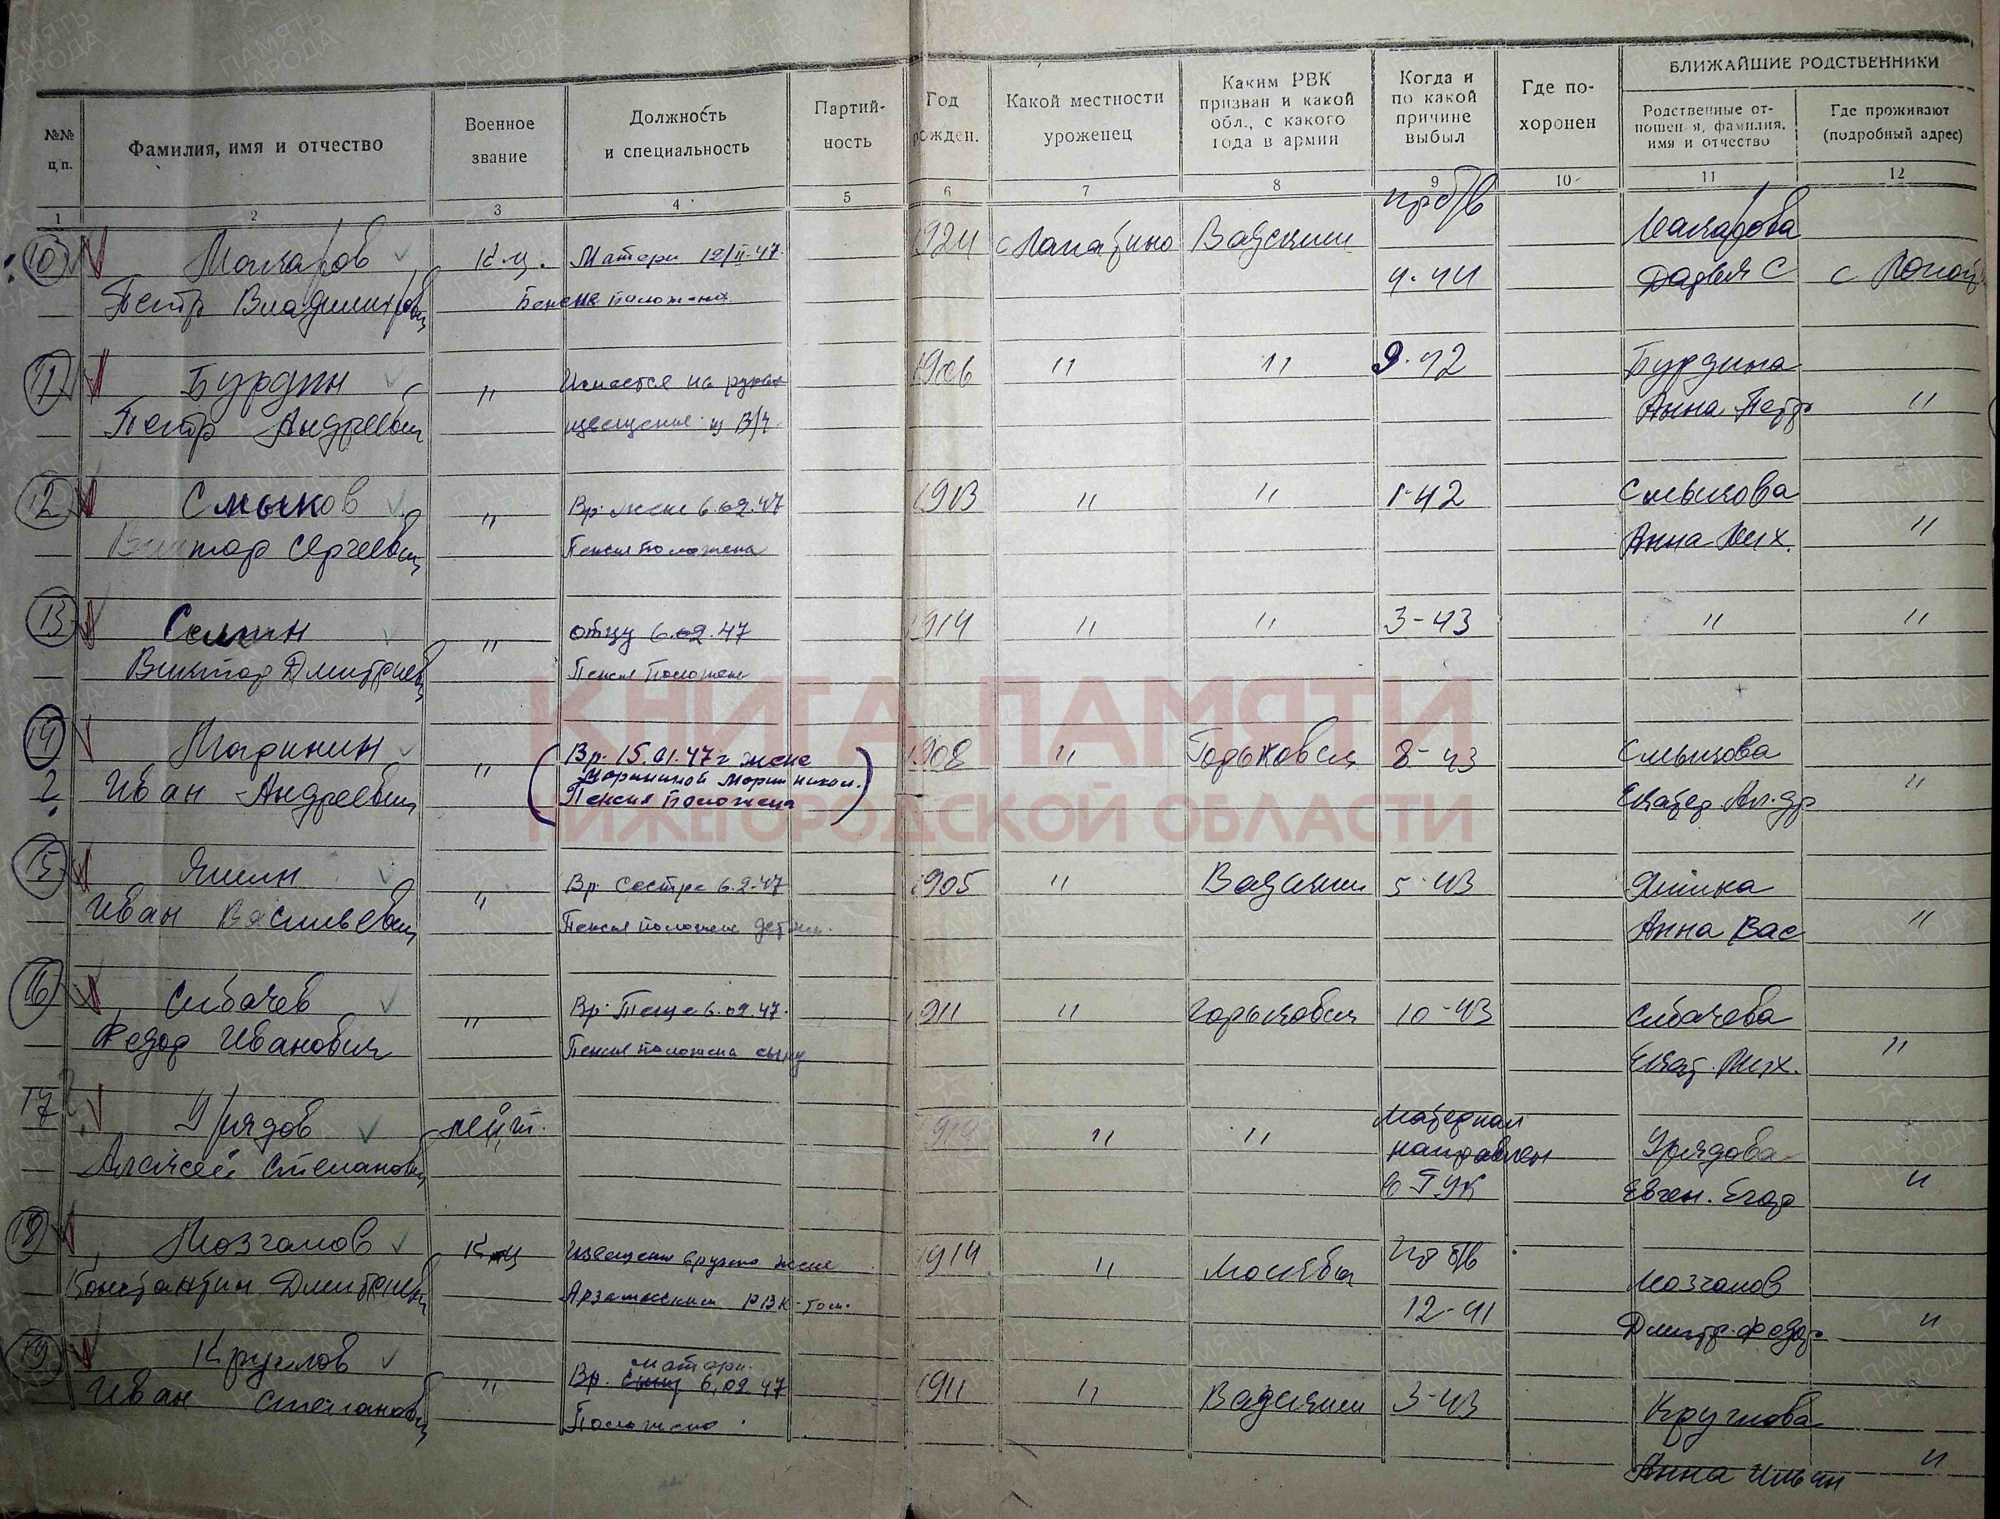 БЛИЖАЙШИЕ РОДСТВЕННИКИ
№№ ц.п.
Фамилия, имя и отчество
Военное звание
Должность и специальность
Партий- ность
Год рожден.
Какой местности уроженец
Каким РВК призван и какой обл., с какого года в армии
Когда и по какой причине выбыл
Где по- хоронен
Родственные от- ношен-я, фамилия, имя и отчество
Где проживают (подробный адрес)
1 2 3 4 5 6 7 8 9 10 11 12
пр б/в
10 Макаров К-ц. Матери 12/II-47. 1924 с Лопатино Вадским Макарова
Петр Владимирович Пенсия положена 4-44 Дарья С с Лопат
11 Бурдин " Имеется на руках 1906 " " 9-42 Бурдина
Петр Андреевич извещение из В/ч. Анна Петр "
12 Смыков " Вр. жене 6.02.47 1913 " " 1-42 Смыкова
Виктор Сергеевич Пенсия положена Анна Мих. "
13 " отцу 6.02.47 1914 " " 3-43 " "
Виктор Дмитриевич Пенсия положена
14 Маринин " Вр. 15.01.47 г жене 1908 " Горьковск 8-43 Смыкова
2 Иван Андреевич Марининой Марии Никол. Екатер. Ал-др "
Пенсия положена
15 Яшин " Вр. сестре 6.2.47 1905 " Вадским 5-43 Яшина
Иван Васильевич Пенсия положена детям. Анна Вас "
16 Сибачев " Вр. Теще 6.02.47. 1911 " Горьковск 10-43 Сибачева
Федор Иванович Пенсия положена сыну Екат. Мих. "
17 Урядов лейт. 1914 " " Материал Урядова
Алексей Степанович направлен Евген. Егор "
в ГУК
18 Мозгалов К-ц Извещение вручено жене 1914 " Москвы пр б/в Мозгалов
Константин Дмитриевич Арзамасским РВК-том. 12-41 Дмитр. Федор "
19 Круглов " Вр. сыну матери. 6.02.47 1911 " Вадским 3-43 Круглова
Иван Степанович Положено. Анна Ильин "
КНИГА ПАМЯТИ
НИЖЕГОРОДСКОЙ ОБЛАСТИ
ПАМЯТЬ НАРОДА